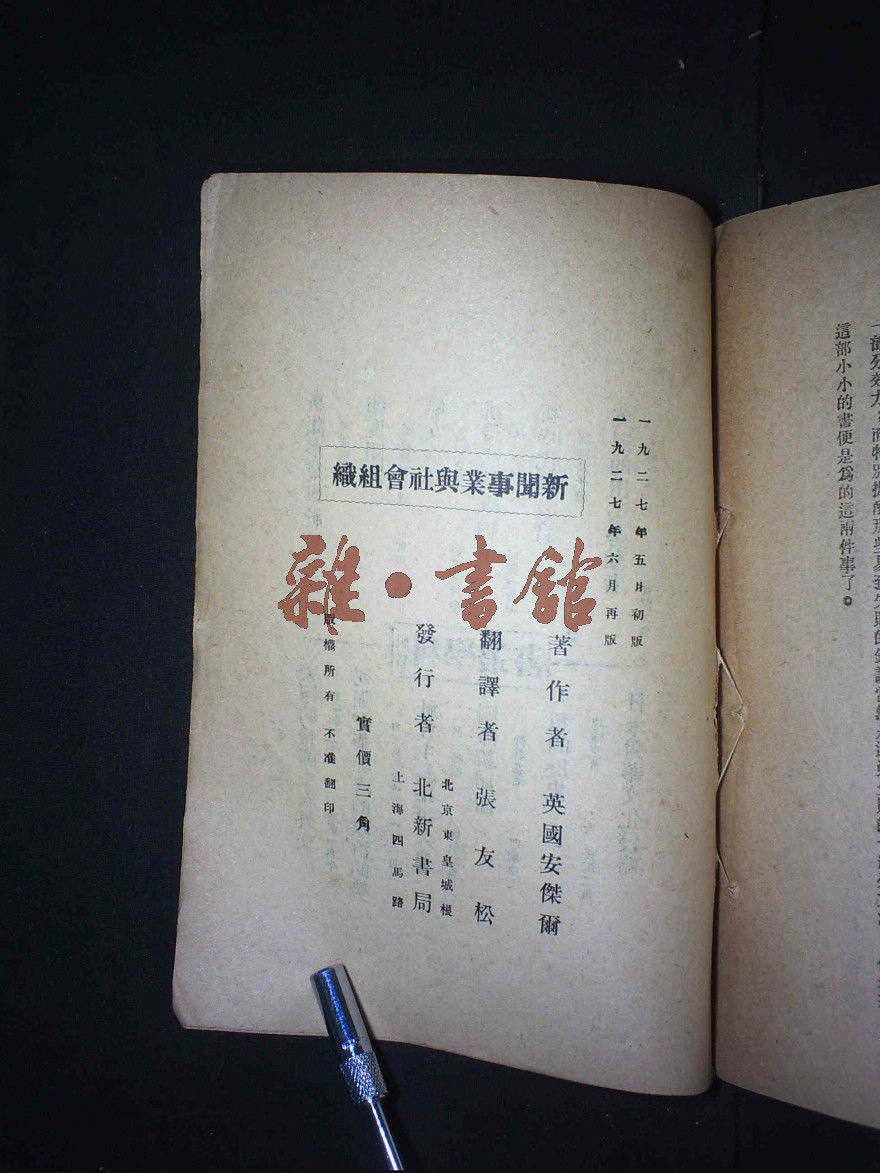 這部小小的書便是爲的這兩件事了。
一九二七年五月初版
一九二七年六月再版
新聞事業與社會組織
著作者 英國安傑爾
翻譯者 張友松
發行者 北新書局
北京東皇城根
上海四馬路
實價三角
版權所有 不准翻印
雜·書館